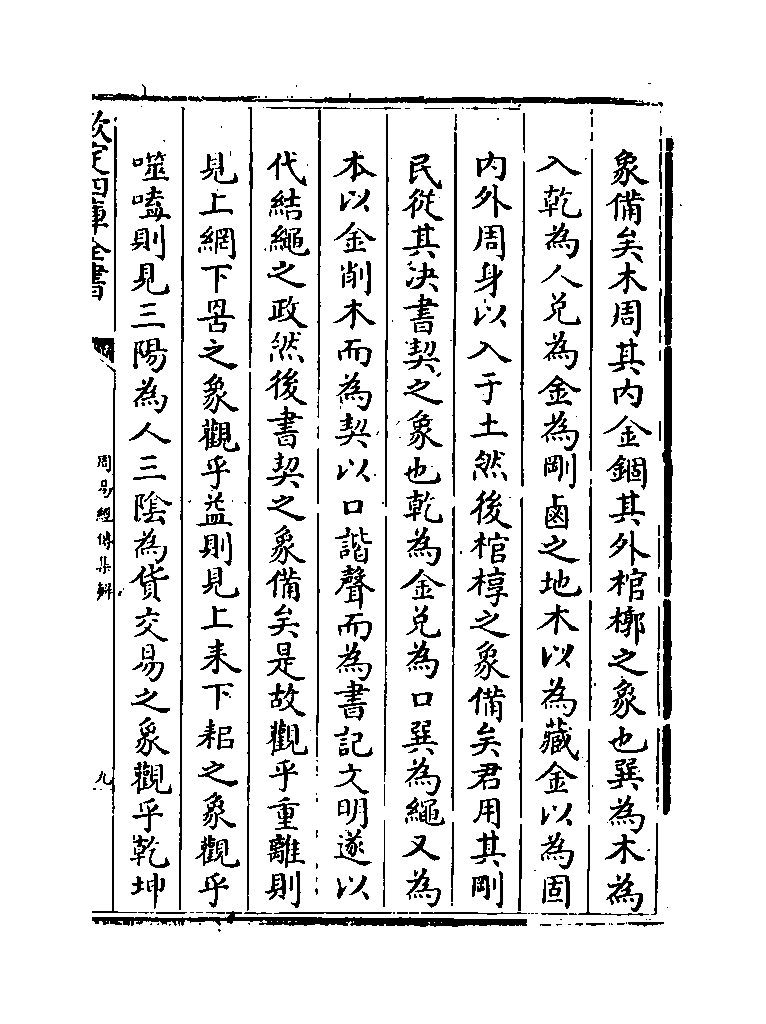 象備矣木周其内金錮其外棺槨之象也巽為木為
入乾為人兑為金為剛鹵之地木以為藏金以為固
内外周身以入于土然後棺椁之象備矣君用其剛
民從其決書契之象也乾為金兑為口巽為繩又為
本以金削木而為契以口諧聲而為書記文明遂以
代結繩之政然後書契之象備矣是故觀乎重離則
見上網下罟之象觀乎益則見上耒下耜之象觀乎
噬嗑則見三陽為人三陰為貨交易之象觀乎乾坤
欽定四庫全書
周易經傳集解
九